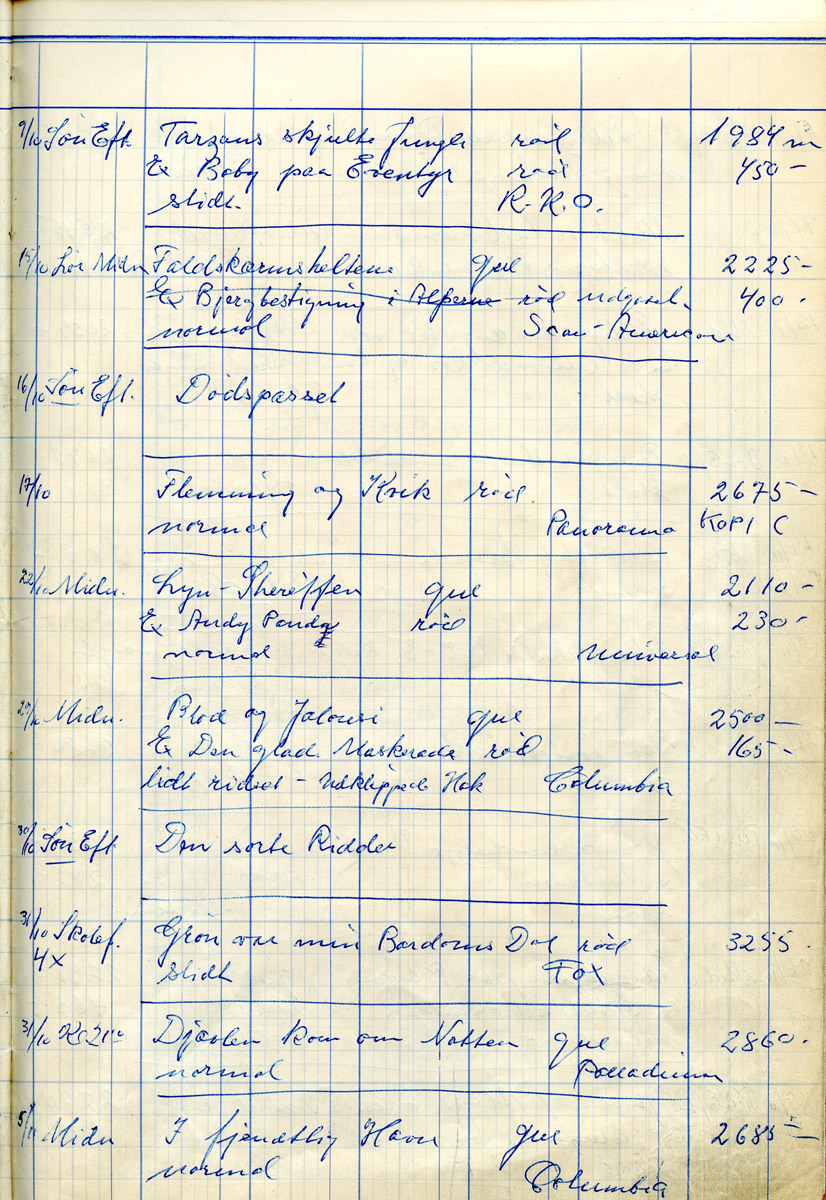 9/10 Søn Eft. Tarzans skjulte Jungle rød 1984 m
Ex Baby paa Eventyr rød 450 -
slidt. R.K.O.
15/10 Lør Midn Faldskærmsheltene gul 2225 -
Ex Bjergbestigning i Alperne rød udgaaet. 400 -
normal Scan-American
16/10 Søn Eft. Dødspasset
17/10 Flemming og Kvik rød 2675 -
normal Panorama KOPI C
22/10 Midn. Lyn-Sheriffen gul 2110 -
Ex Andy Panda rød 230 -
normal Universal
29/10 Midn. Blod og Jalousi gul 2500 -
Ex Den glade Maskerade rød 165 -
lidt ridset - udklippede Hak Columbia
30/10 Søn Eft Den sorte Ridder
31/10 Skolef. Grøn var min Bardoms Dal rød 3255 -
4x slidt Fox
31/10 Kl 21 Djævlen kom om Natten gul 2860 -
normal Palladium
5/11 Midn I fjendtlig Havn gul 2685 -
normal Columbia